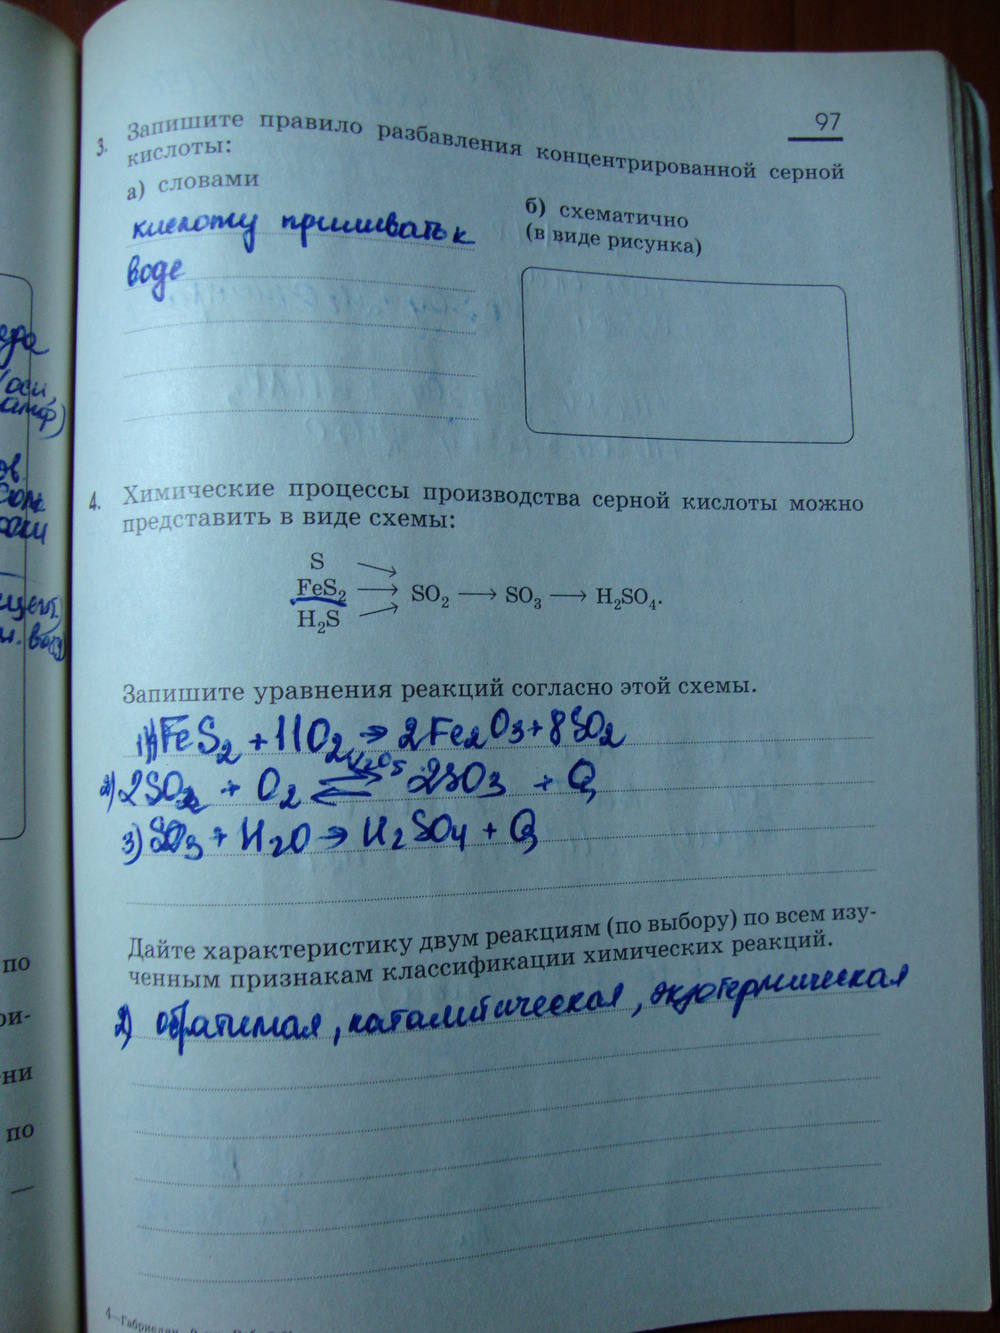 97
3. Запишите правило разбавления концентрированной серной
кислоты:
а) словами
б) схематично
(в виде рисунка)
кислоту приливать к
воде
4. Химические процессы производства серной кислоты можно
представить в виде схемы:
S
FeS₂ → SO₂ → SO₃ → H₂SO₄.
H₂S
Запишите уравнения реакций согласно этой схемы.
1) 4FeS₂ + 11O₂ → 2Fe₂O₃ + 8SO₂
V₂O₅
2) 2SO₂ + O₂ ⇄ 2SO₃ + Q
3) SO₃ + H₂O → H₂SO₄ + Q
Дайте характеристику двум реакциям (по выбору) по всем изу-
ченным признакам классификации химических реакций.
2) обратимая, каталитическая, экзотермическая
по
ри-
ни
по
—